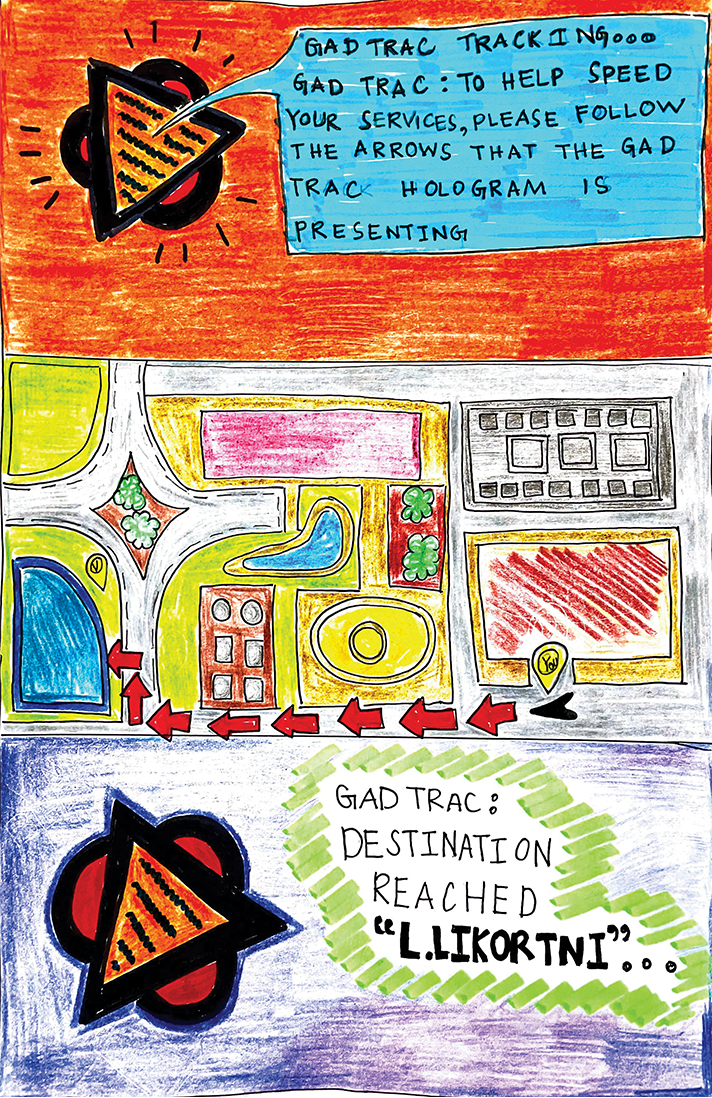 GAD TRAC TRACKING...
GAD TRAC: TO HELP SPEED
YOUR SERVICES, PLEASE FOLLOW
THE ARROWS THAT THE GAD
TRACK HOLOGRAM IS
PRESENTING
YOU
GAD TRAC:
DESTINATION
REACHED
"L.LIKORTNI"...